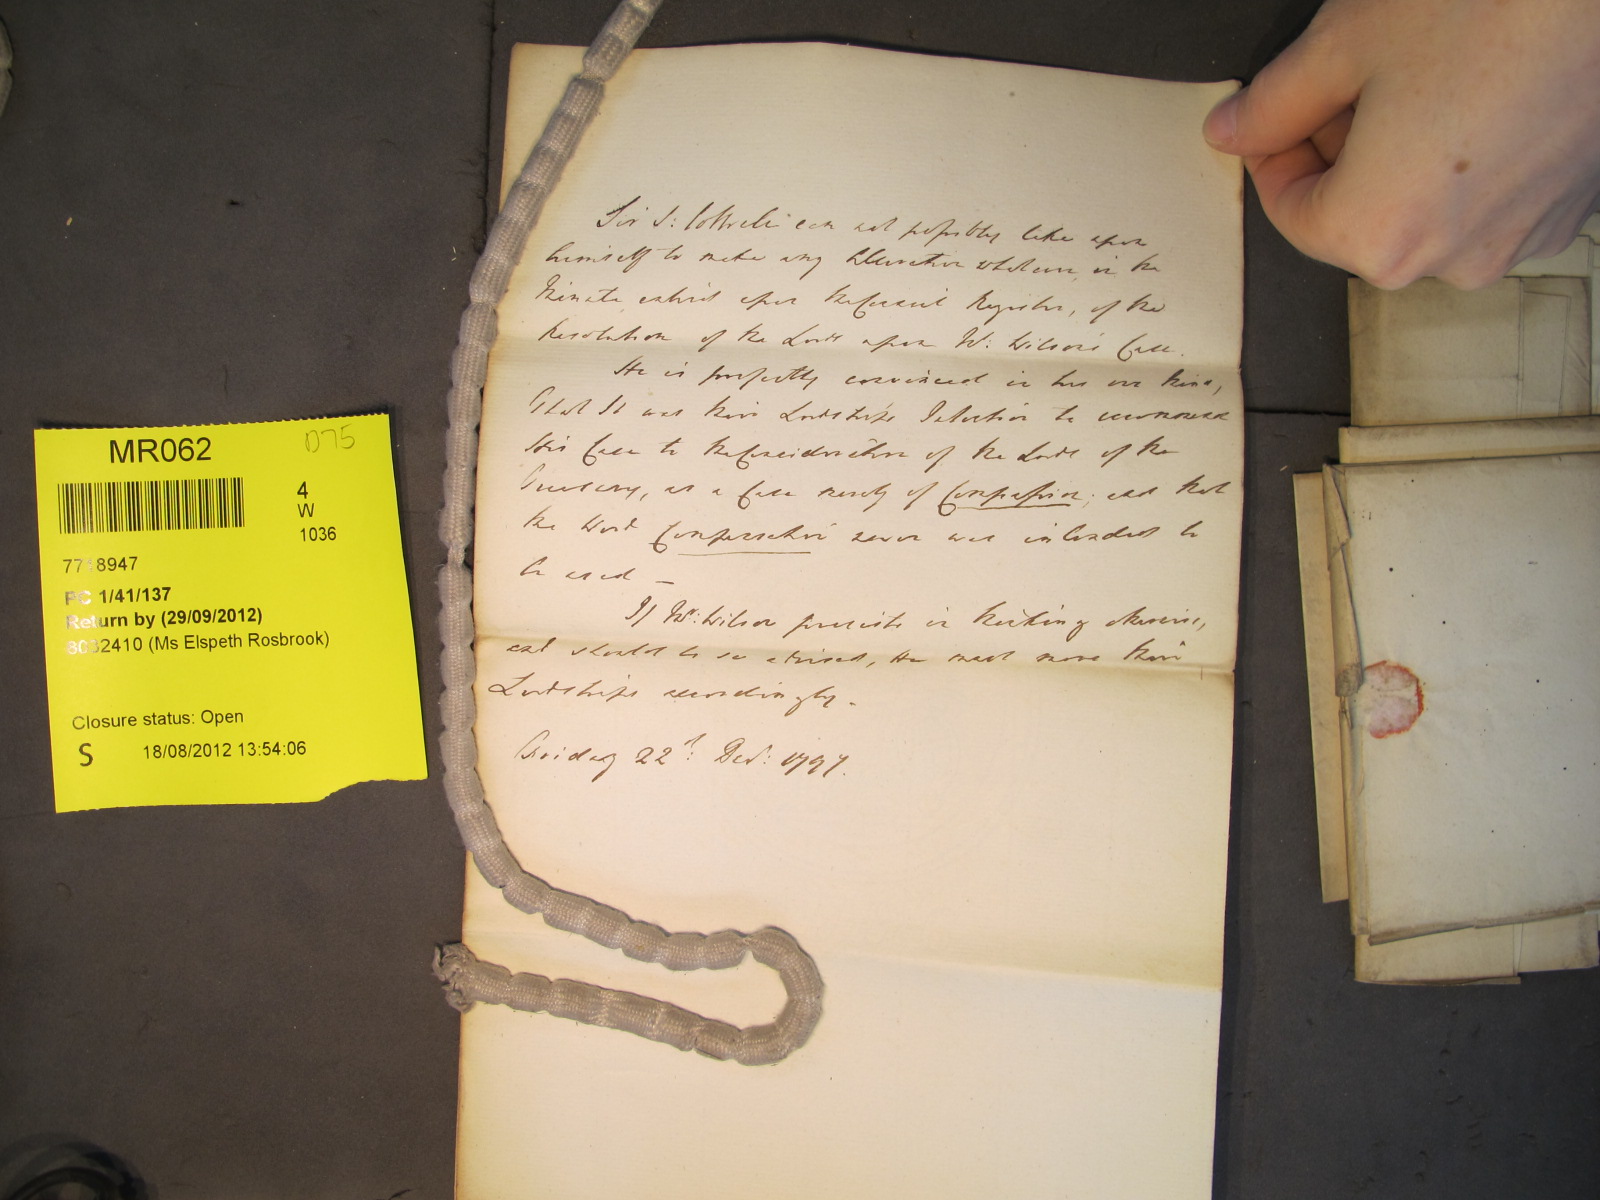 MR062
D75
4
W
1036
7718947
PC 1/41/137
Return by (29/09/2012)
8032410 (Ms Elspeth Rosbrook)
Closure status: Open
S 18/08/2012 13:54:06
Sir S: Cottrell can not possibly take upon
himself to make any Alteration whatever in the
Minute, entered upon the Council Register, of the
Resolution of the Lords upon Mr: Wilson's Case.
He is perfectly convinced in his own Mind,
that It was their Lordships Intention to recommend
His Case to the Consideration of the Lords of the
Treasury, as a Case merely of Compassion; and that
the Word Compensation never was intended to
be used —
If Mr: Wilson persists in thinking otherwise,
and should be so advised, He must move their
Lordships accordingly.
Friday 22d: Decr: 1797.